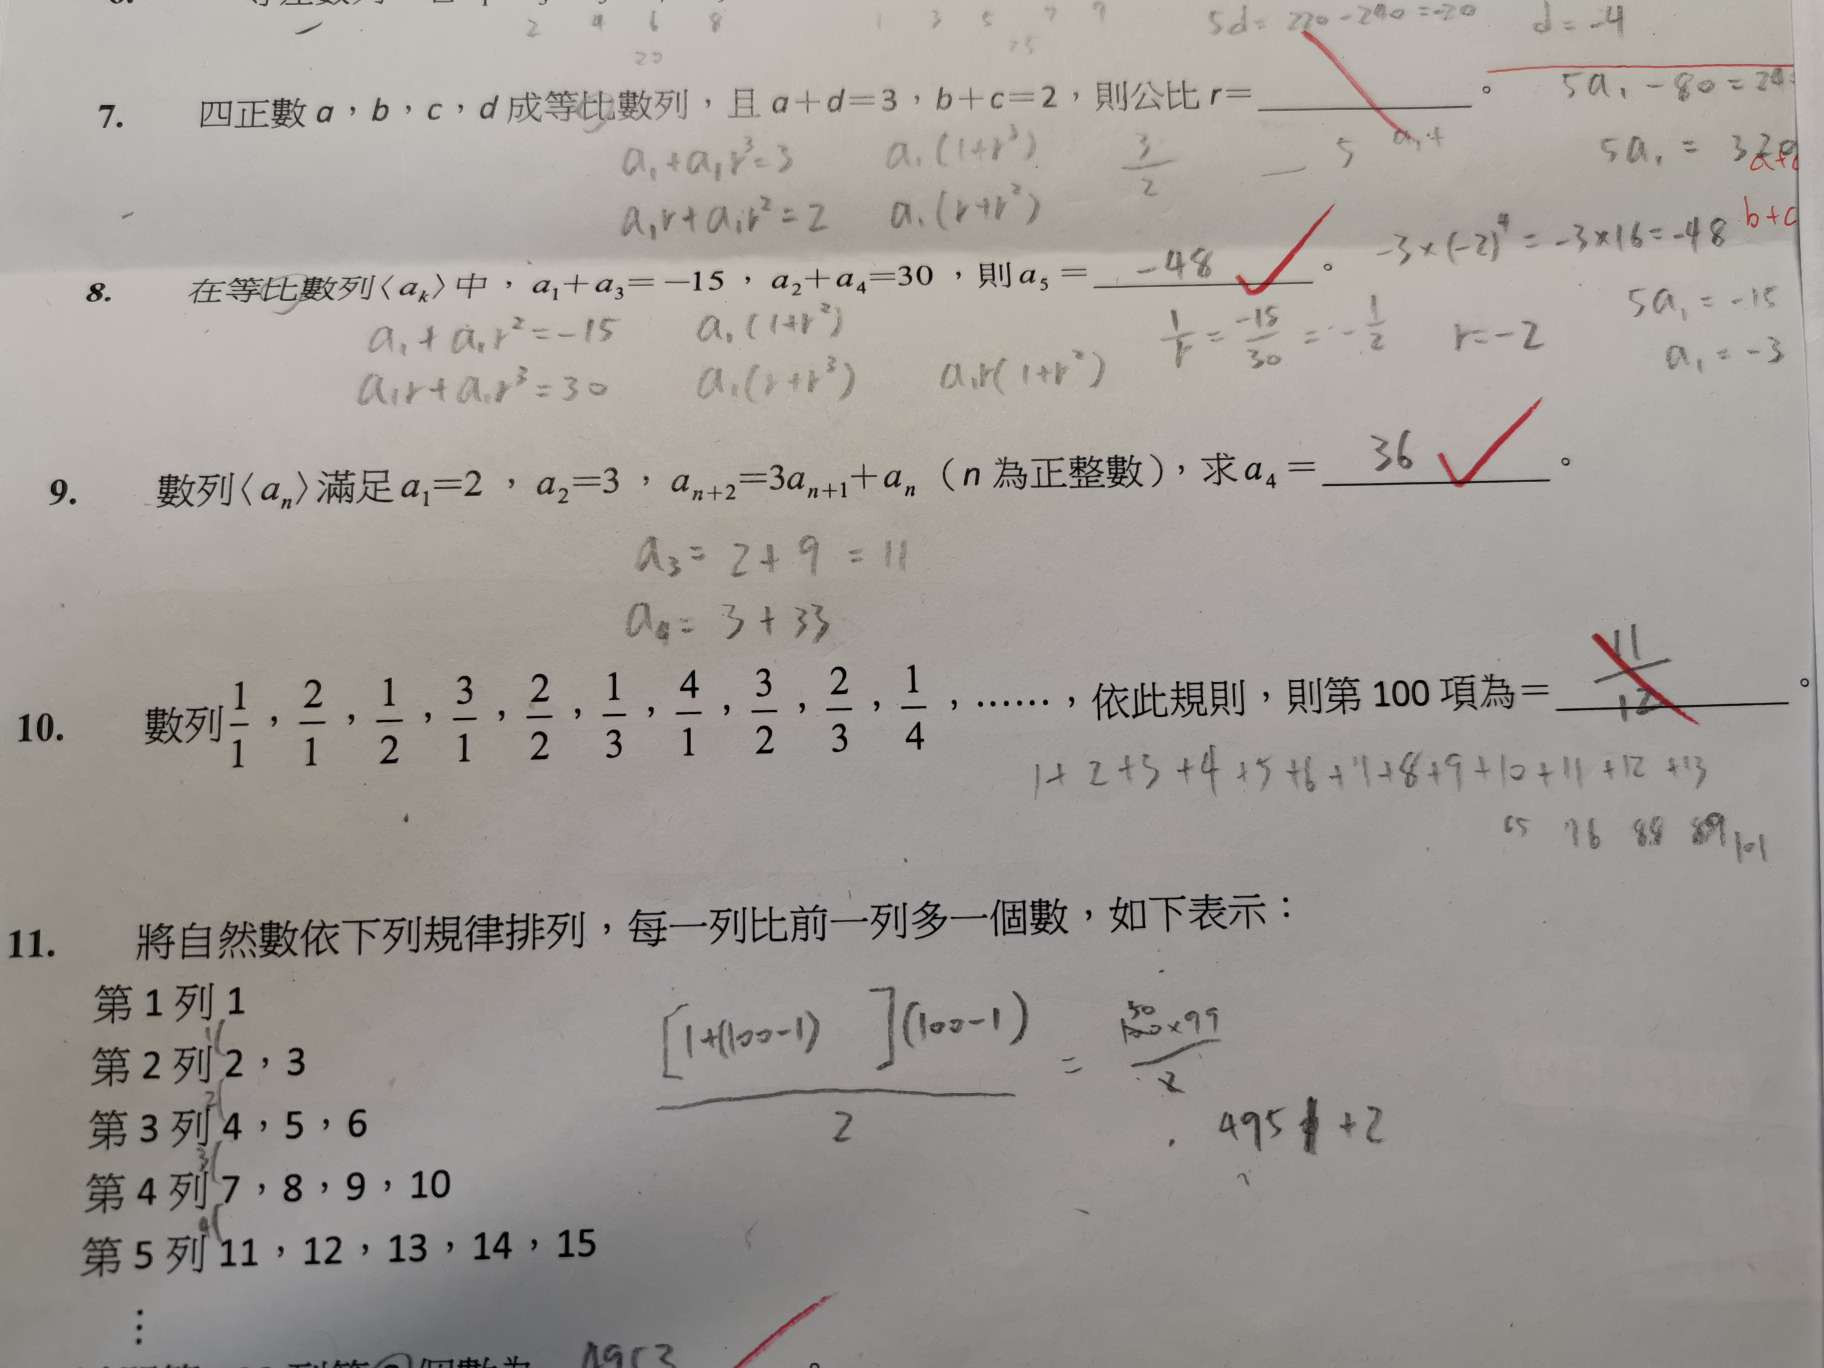 2 4 6 8 1 3 5 7 9 5d = 220 - 240 = -20 d = -4
20 25
7. 四正數 a，b，c，d 成等比數列，且 a+d=3，b+c=2，則公比 r=______。 5a₁ - 80 = 24
a₁+a₁r³=3 a₁(1+r³) 3/2 5 a₁+ 5a₁ = 320
a₁r+a₁r²=2 a₁(r+r²) b+c
-3×(-2)⁴ = -3×16 = -48
8. 在等比數列〈aₖ〉中，a₁+a₃=−15，a₂+a₄=30，則 a₅= -48 。
a₁+a₁r²=-15 a₁(1+r²) 1/r = -15/30 = -1/2 r=-2 5a₁ = -15
a₁r+a₁r³=30 a₁(r+r³) a₁r(1+r²) a₁ = -3
9. 數列〈aₙ〉滿足 a₁=2，a₂=3，aₙ₊₂=3aₙ₊₁+aₙ（n 為正整數），求 a₄= 36 。
a₃= 2+9 = 11
a₄= 3+33
10. 數列 1/1，2/1，1/2，3/1，2/2，1/3，4/1，3/2，2/3，1/4，……，依此規則，則第 100 項為= 11/12 。
1+2+3+4+5+6+7+8+9+10+11+12+13
65 76 88 89 101
11. 將自然數依下列規律排列，每一列比前一列多一個數，如下表示：
第 1 列 1
1
第 2 列 2，3
2
第 3 列 4，5，6
3
第 4 列 7，8，9，10
4
第 5 列 11，12，13，14，15
⋮
[1+(100-1)](100-1)/2 = 100×99/2
50
495 +2
4953 。